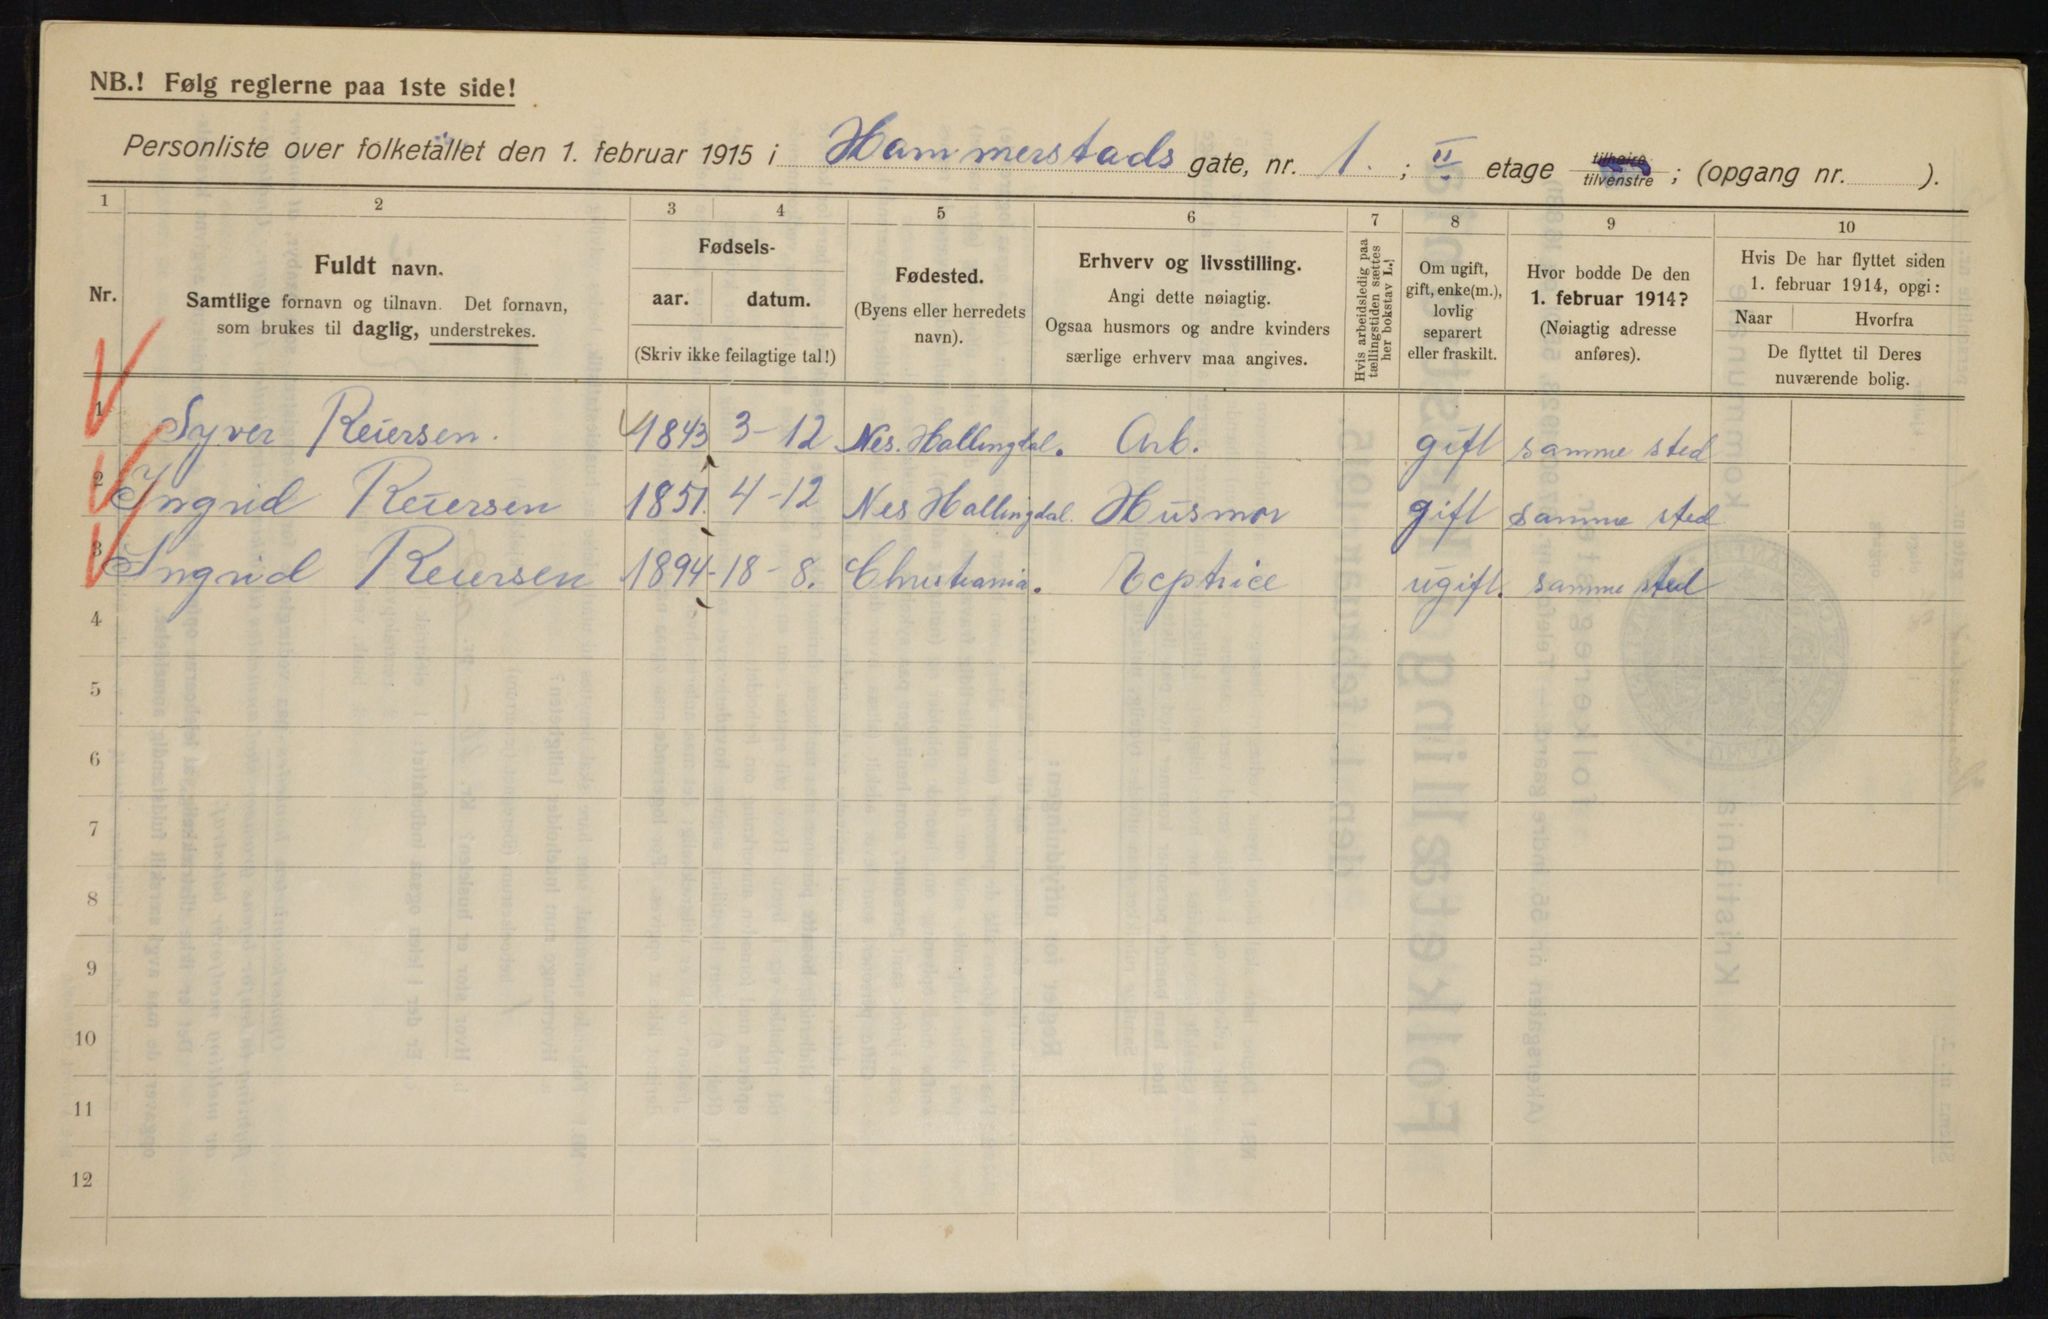 NB.! Følg reglerne paa 1ste side!
Personliste over folketallet den 1. februar 1915 i Hammerstads gate, nr. 1. ; II etage tilhøire tilvenstre ; (opgang nr. ).
1 2 3 4 5 6 7 8 9 10
Nr.
Fuldt navn.
Samtlige fornavn og tilnavn. Det fornavn,
som brukes til daglig, understrekes.
Fødsels-
aar. datum.
(Skriv ikke feilagtige tal!)
Fødested.
(Byens eller herredets
navn).
Erhverv og livsstilling.
Angi dette nøiagtig.
Ogsaa husmors og andre kvinders
særlige erhverv maa angives.
Hvis arbeidsledig paa
tællingstiden sættes
her bokstav L.!
Om ugift,
gift, enke(m.),
lovlig
separert
eller fraskilt.
Hvor bodde De den
1. februar 1914?
(Nøiagtig adresse
anføres).
Hvis De har flyttet siden
1. februar 1914, opgi:
Naar Hvorfra
De flyttet til Deres
nuværende bolig.
1 Syver Reiersen. 1843 3-12 Nes. Hallingdal. Arb. gift samme sted
2 Ingrid Reiersen 1851. 4-12 Nes Hallingdal. Husmor gift samme sted
3 Ingrid Reiersen 1894- 18-8. Christiania. ugift. samme sted
4
5
6
7
8
9
10
11
12